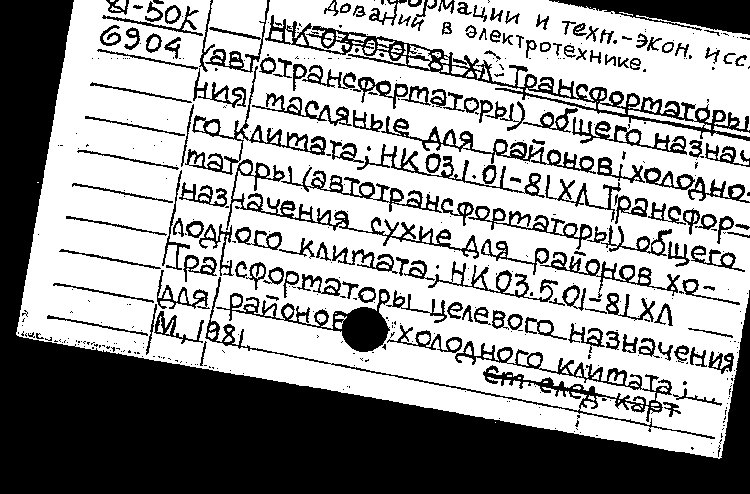 81-50К
6904
формации и техн.-экон. исс
дований в электротехнике.
НК 03.0.01-81 ХЛ Трансформаторы
(автотрансформаторы) общего назнач
ния масляные для районов холодно-
го климата; НК 03.1.01-81 ХЛ Трансфор-
маторы (автотрансформаторы) общего
назначения сухие для районов хо-
лодного климата; НК 03.5.01-81 ХЛ
Трансформаторы целевого назначения
для районов холодного климата; ...
М., 1981.
см. след. карт